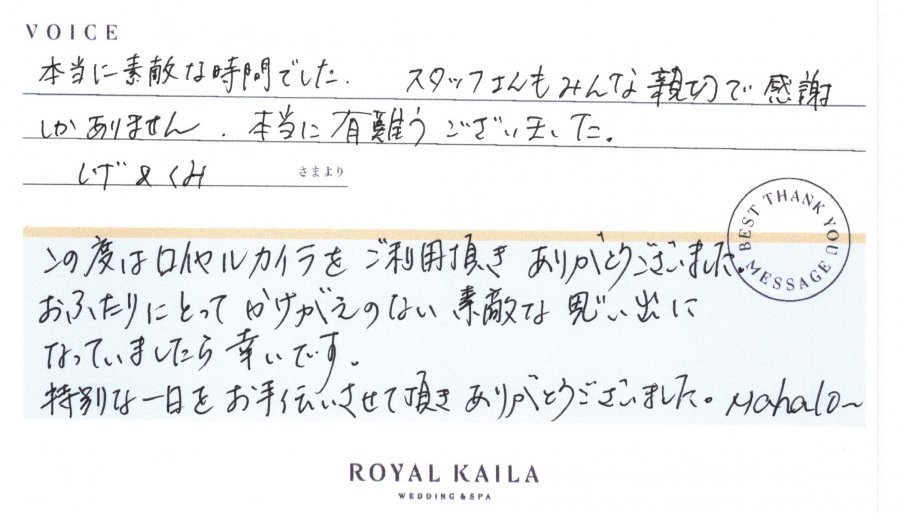 VOICE
本当に素敵な時間でした. スタッフさんもみんな親切で感謝
しかありません. 本当に有難うございました。
しげ&くみ さまより
BEST THANK YOU MESSAGE
この度はロイヤルカイラをご利用頂きありがとうございました。
おふたりにとってかけがえのない素敵な思い出に
なっていましたら幸いです。
特別な一日をお手伝いさせて頂きありがとうございました。Mahalo~
ROYAL KAILA
WEDDING & SPA